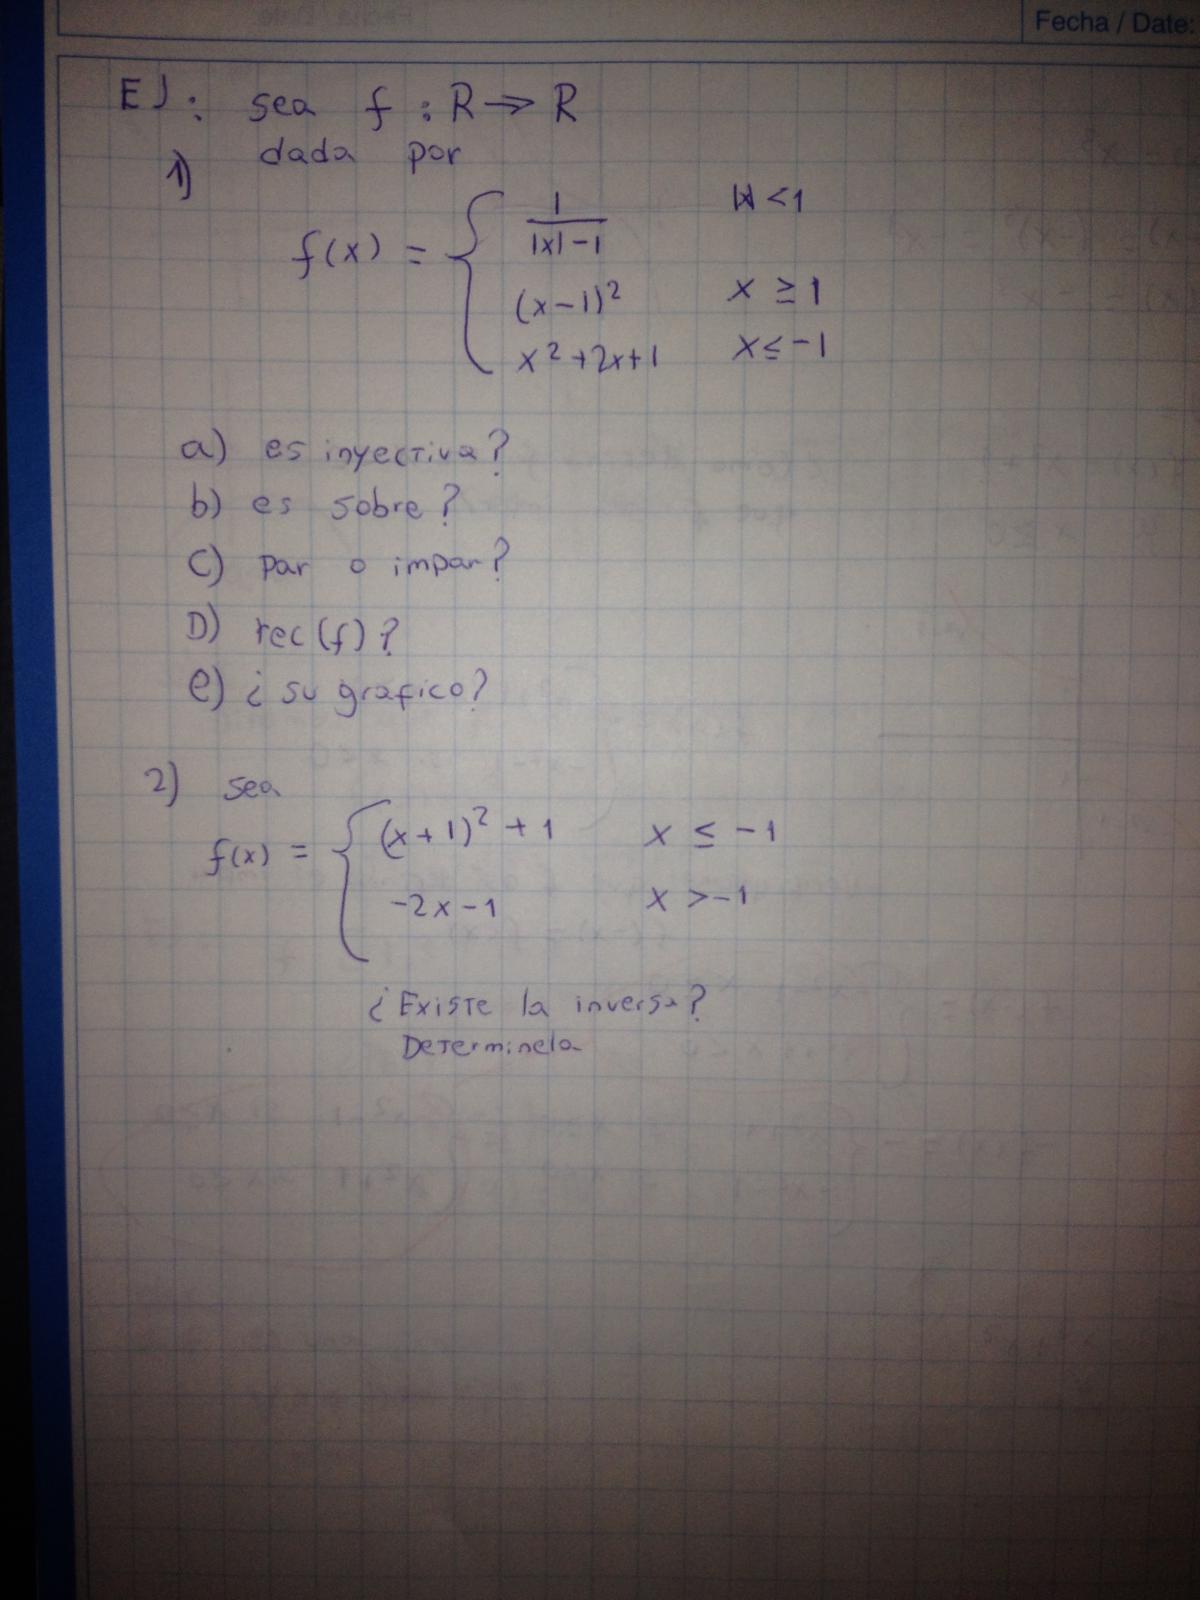 Fecha / Date:
EJ: sea f : R → R
1) dada por
f(x) = { 1/(|x|-1) |x| < 1
(x-1)² x ≥ 1
x²+2x+1 x ≤ -1
a) es inyectiva?
b) es sobre?
c) par o impar?
D) rec(f)?
e) ¿su grafico?
2) sea
f(x) = { (x+1)² + 1 x ≤ -1
-2x-1 x > -1
¿Existe la inversa?
Determinela